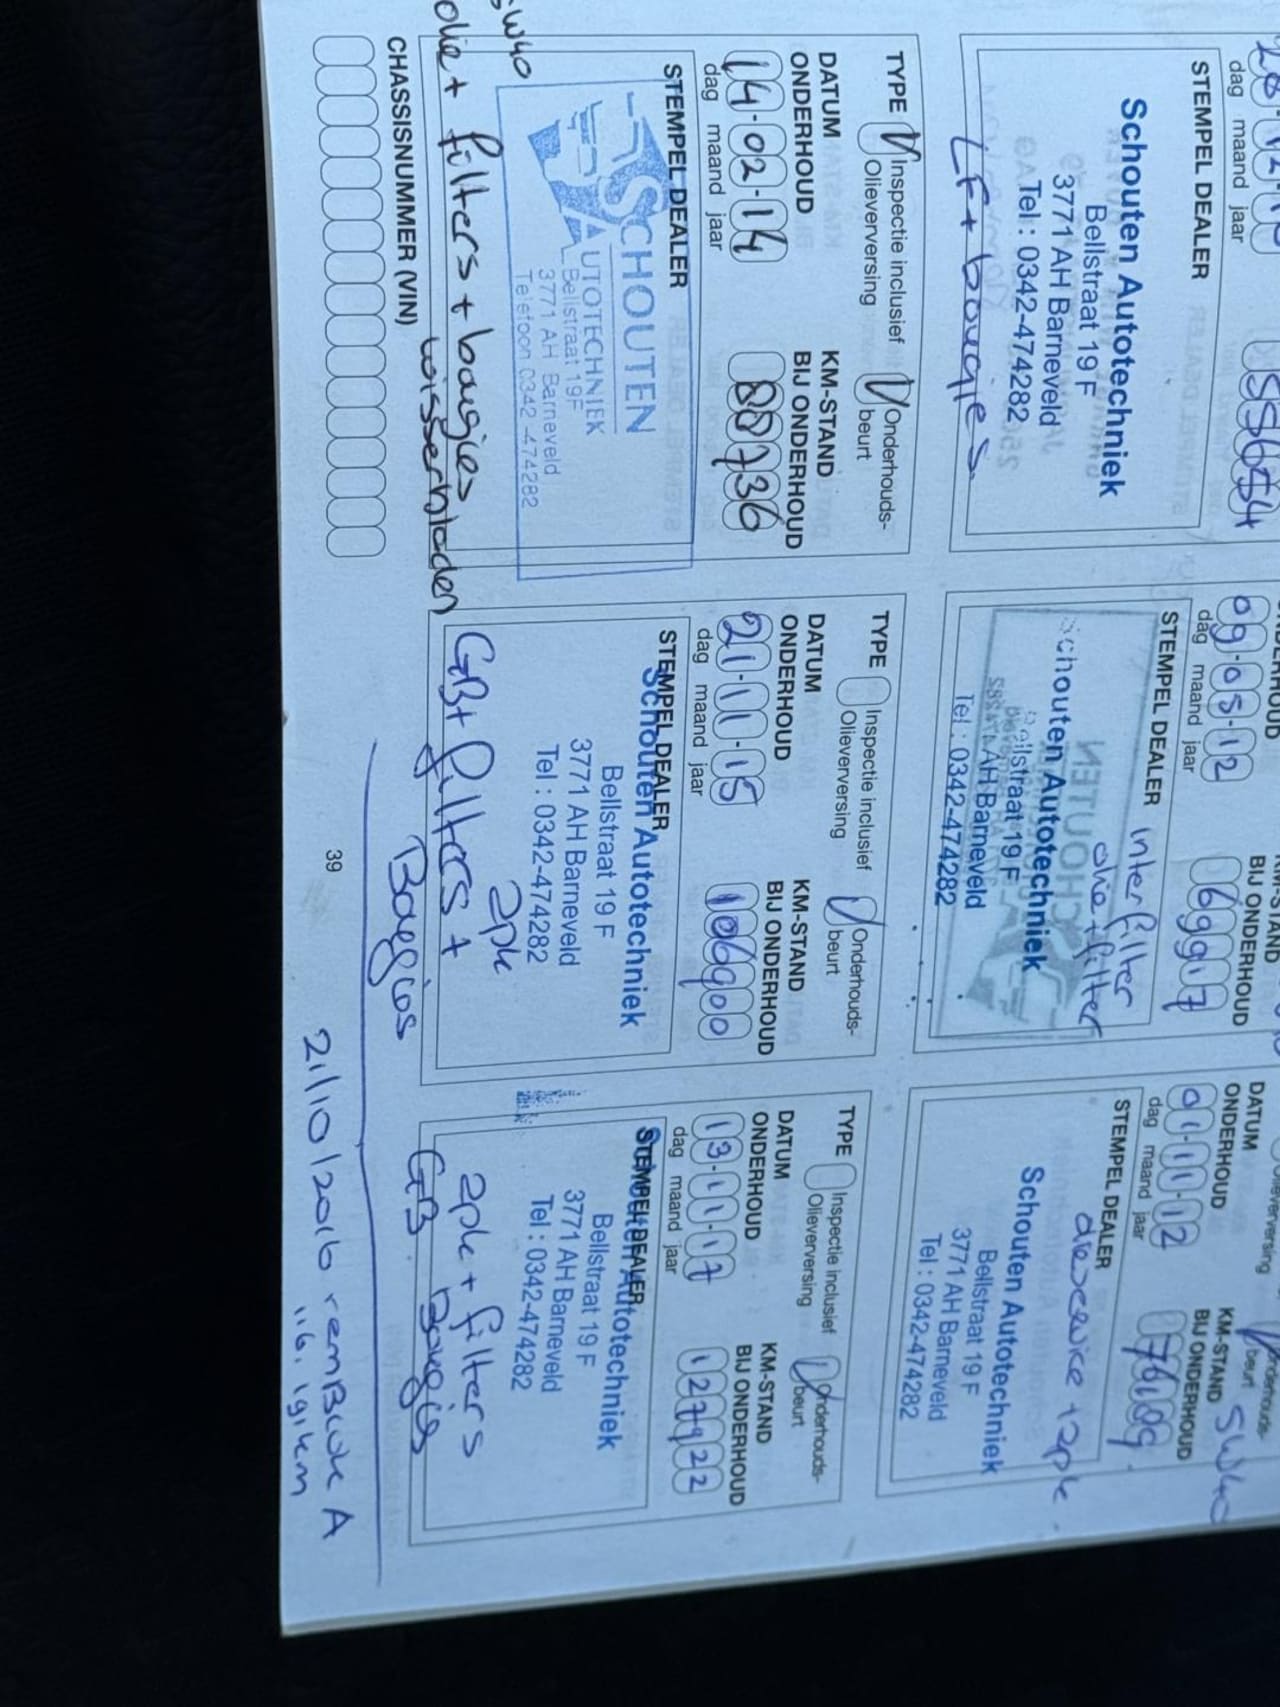 dag maand jaar
STEMPEL DEALER
Schouten Autotechniek
Bellstraat 19 F
3771 AH Barneveld
Tel : 0342-474282
LF + bougies
09-05-12
dag maand jaar
BIJ ONDERHOUD
69917
STEMPEL DEALER
interfilter
olie + filter
Schouten Autotechniek
Bellstraat 19 F
3771 AH Barneveld
Tel : 0342-474282
Olieverversing
beurt
SW40
DATUM
ONDERHOUD
KM-STAND
BIJ ONDERHOUD
01-11-12
dag maand jaar
STEMPEL DEALER
Schouten Autotechniek
Bellstraat 19 F
3771 AH Barneveld
Tel : 0342-474282
TYPE
V Inspectie inclusief
Olieverversing
V Onderhouds-
beurt
DATUM
ONDERHOUD
KM-STAND
BIJ ONDERHOUD
14-02-14
88736
dag maand jaar
STEMPEL DEALER
SCHOUTEN
AUTOTECHNIEK
Bellstraat 19F
3771 AH Barneveld
Telefoon 0342-474282
5W40
olie + filters + bougies
wisserbladen
TYPE
Inspectie inclusief
Olieverversing
V Onderhouds-
beurt
DATUM
ONDERHOUD
KM-STAND
BIJ ONDERHOUD
21-11-15
106900
dag maand jaar
STEMPEL DEALER
Schouten Autotechniek
Bellstraat 19 F
3771 AH Barneveld
Tel : 0342-474282
apk
GB + filters +
Bougies
TYPE
Inspectie inclusief
Olieverversing
V Onderhouds-
beurt
DATUM
ONDERHOUD
KM-STAND
BIJ ONDERHOUD
13-11-17
127922
dag maand jaar
STEMPEL DEALER
Schouten Autotechniek
Bellstraat 19 F
3771 AH Barneveld
Tel : 0342-474282
apk + filters
GB Bougies
CHASSISNUMMER (VIN)
39
21/10/2016 remBlok A
116.191 km